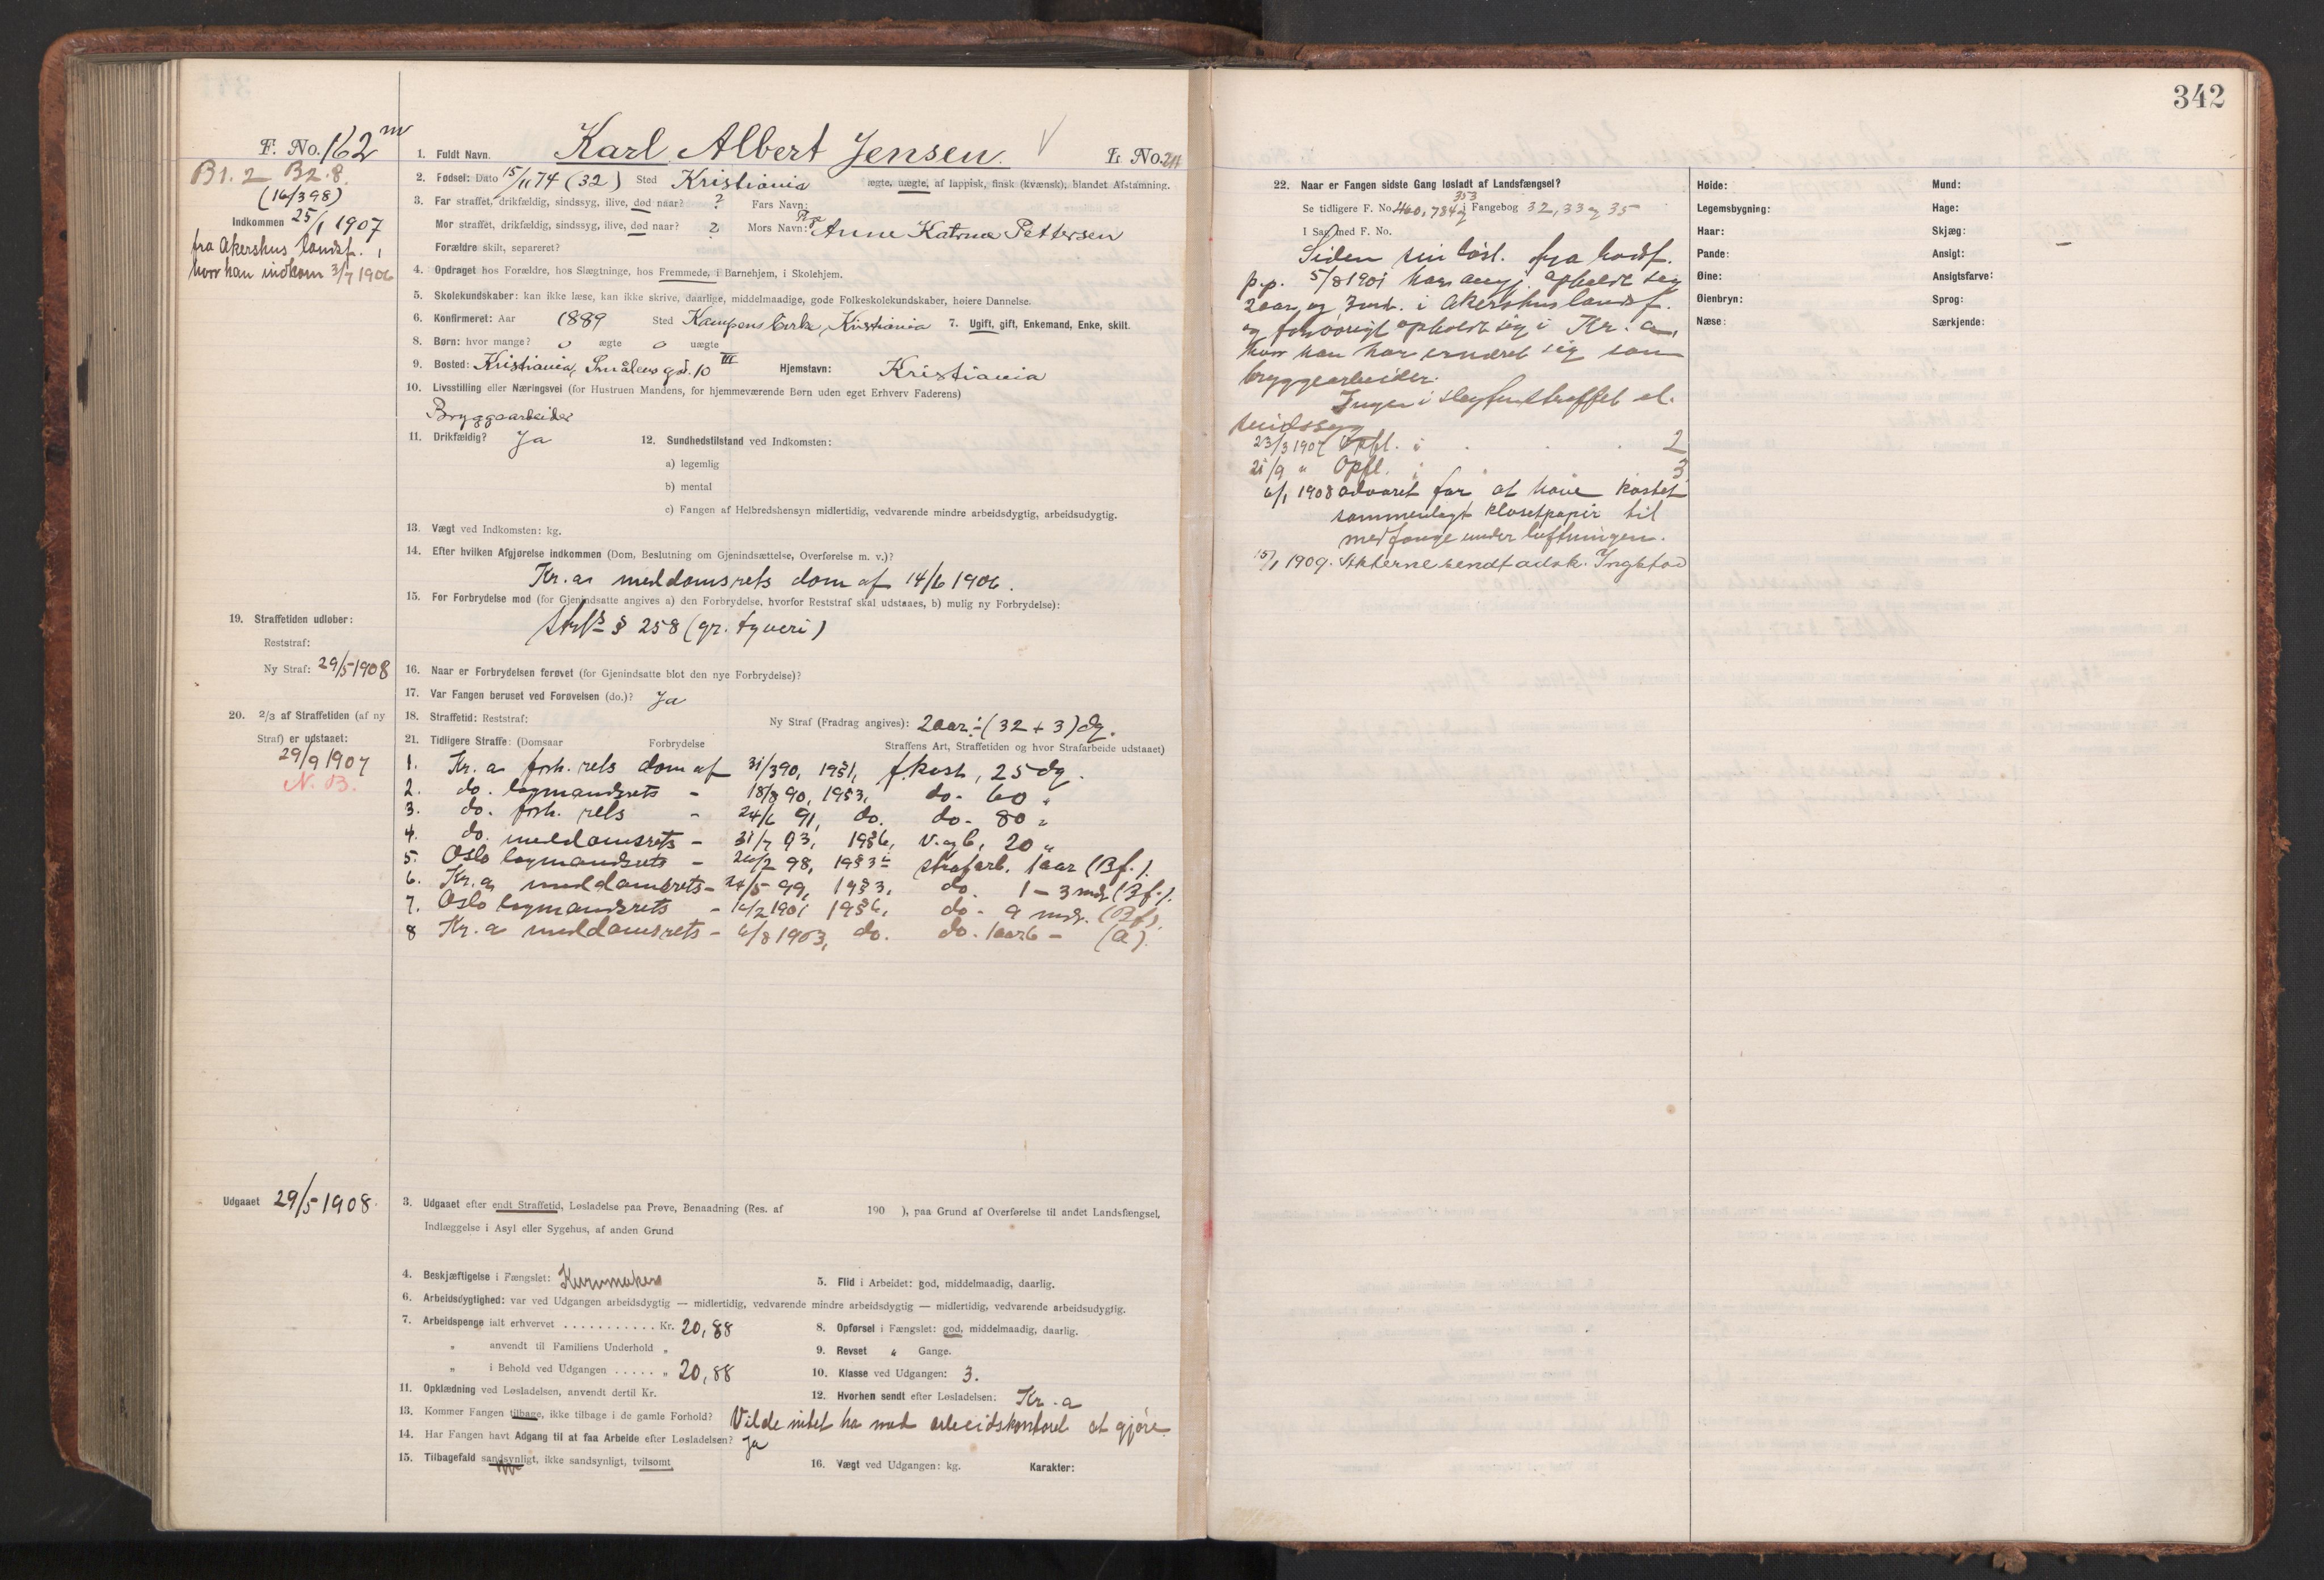 342
F. No. 162
1. Fuldt Navn. Karl Albert Jensen. L. No.
B1. 2 B2. 8.
2. Fødsel: Dato 15/11 74 (32) Sted Kristiania ægte, uægte, af lappisk, finsk (kvænsk), blandet Afstamning.
(16/398)
3. Far straffet, drikfældig, sindssyg, ilive, død naar? ? Fars Navn:
Indkommen 25/1 1907
Mor straffet, drikfældig, sindssyg, ilive, død naar? ? Mors Navn: Anne Katrine Pettersen
fra Akershus landsf.,
Forældre skilt, separeret?
hvor han indkom 3/7 1906
4. Opdraget hos Forældre, hos Slægtninge, hos Fremmede, i Barnehjem, i Skolehjem.
5. Skolekundskaber: kan ikke læse, kan ikke skrive, daarlige, middelmaadige, gode Folkeskolekundskaber, høiere Dannelse.
6. Konfirmeret: Aar 1889 Sted Kampens kirke, Kristiania 7. Ugift, gift, Enkemand, Enke, skilt.
8. Børn: hvor mange? 0 ægte 0 uægte
9. Bosted: Kristiania, Smålens gd. 10 III Hjemstavn: Kristiania
10. Livsstilling eller Næringsvei (for Hustruen Mandens, for hjemmeværende Børn uden eget Erhverv Faderens)
Bryggearbeider
11. Drikfældig? Ja 12. Sundhedstilstand ved Indkomsten:
a) legemlig
b) mental
c) Fangen af Helbredshensyn midlertidig, vedvarende mindre arbeidsdygtig, arbeidsudygtig.
13. Vægt ved Indkomsten: kg.
14. Efter hvilken Afgjørelse indkommen (Dom, Beslutning om Gjenindsættelse, Overførelse m. v.)?
Kr.a meddomsrets dom af 14/6 1906.
15. For Forbrydelse mod (for Gjenindsatte angives a) den Forbrydelse, hvorfor Reststraf skal udstaaes, b) mulig ny Forbrydelse):
§ 258 (gr. tyveri)
19. Straffetiden udløber:
Reststraf:
Ny Straf: 29/5 1908
16. Naar er Forbrydelsen forøvet (for Gjenindsatte blot den nye Forbrydelse)?
17. Var Fangen beruset ved Forøvelsen (do.)? Ja
20. 2/3 af Straffetiden (af ny
Straf) er udstaaet:
29/9 1907
N. B.
18. Straffetid: Reststraf: Ny Straf (Fradrag angives): 2 aar ÷ (32 + 3) dg.
21. Tidligere Straffe: (Domsaar Forbrydelse Straffens Art, Straffetiden og hvor Strafarbeide udstaaet)
1. Kr. a forh. rets dom af 31/3 90, 19 § 1, f. kost, 25 dg.
2. do. lagmandsrets - 18/8 90, 19 § 3, do - 60 "
3. do. forh. rets - 24/6 91, do. do - 80 "
4. do. meddomsrets - 31/7 93, 19 § 6, v. og b, 20 "
5. Oslo lagmandsrets - 26/2 98, 19 § 3 strafarb. 1 aar (Bf.).
6. Kr. a meddomsrets - 24/5 99, 19 § 3, do. 1 - 3 mdr. (Bf.).
7. Oslo lagmandsrets - 16/2 1901 19 § 6, do - 9 mdr. (Bf).
8 Kr. a meddomsrets - 6/8 1903, do. do. 1 aar 6 - (A).
Udgaaet 29/5 1908.
3. Udgaaet efter endt Straffetid, Løsladelse paa Prøve, Benaadning (Res. af 190 ), paa Grund af Overførelse til andet Landsfængsel,
Indlæggelse i Asyl eller Sygehus, af anden Grund
4. Beskjæftigelse i Fængslet: Kurvmaker 5. Flid i Arbeidet: god, middelmaadig, daarlig.
6. Arbeidsdygtighed: var ved Udgangen arbeidsdygtig — midlertidig, vedvarende mindre arbeidsdygtig — midlertidig, vedvarende arbeidsudygtig.
7. Arbeidspenge ialt erhvervet . . . . . . . . . . . Kr. 20,88 8. Opførsel i Fængslet: god, middelmaadig, daarlig.
" anvendt til Familiens Underhold " 9. Revset " Gange.
" i Behold ved Udgangen . . . . . " 20,88 10. Klasse ved Udgangen: 3.
11. Opklædning ved Løsladelsen, anvendt dertil Kr. 12. Hvorhen sendt efter Løsladelsen: Kr. a
13. Kommer Fangen tilbage, ikke tilbage i de gamle Forhold? Vilde intet ha med arbeidskontoret at gjøre.
14. Har Fangen havt Adgang til at faa Arbeide efter Løsladelsen? Ja
15. Tilbagefald sandsynligt, ikke sandsynligt, tvilsomt 16. Vægt ved Udgangen: kg. Karakter:
22. Naar er Fangen sidste Gang løsladt af Landsfængsel?
353
Se tidligere F. No. 460, 784 og i Fangebog 32, 33 og 35
I Sag med F. No.
Siden sin løsl. fra bodsf.
p.p. 5/8 1901 har angj. opholdt seg
2 aar og 3 md. i Akershus landsf.
og forøvrigt opholdt sig i Kr. a,
hvor han har ernæret sig som
bryggearbeider.
Ingen i slegten straffet el.
sindssyg
23/3 1907 Opfl. i . . . 2
21/9 " Opfl. i 3
6/1 1908 advaret for at have kastet
sammenlagt klosetpapir til
medfange under luftningen.
15/1 1909. Akterne sendt adsk. Ingstad
Høide: Mund:
Legemsbygning: Hage:
Haar: Skjæg:
Pande: Ansigt:
Øine: Ansigtsfarve:
Øienbryn: Sprog:
Næse: Særkjende: